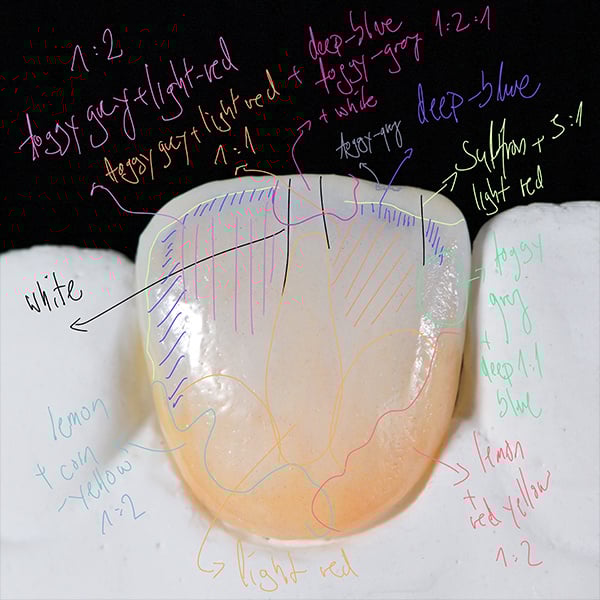 1:2
foggy gray + light-red
foggy gray + light red
1:1
+ deep-blue
foggy-gray 1:2:1
+ white
foggy-gray
deep-blue
+ 5:1
light red
white
foggy
gray
+
deep 1:1
blue
lemon
+ corn
-yellow
1=2
lemon
+
red yellow
1:2
light red